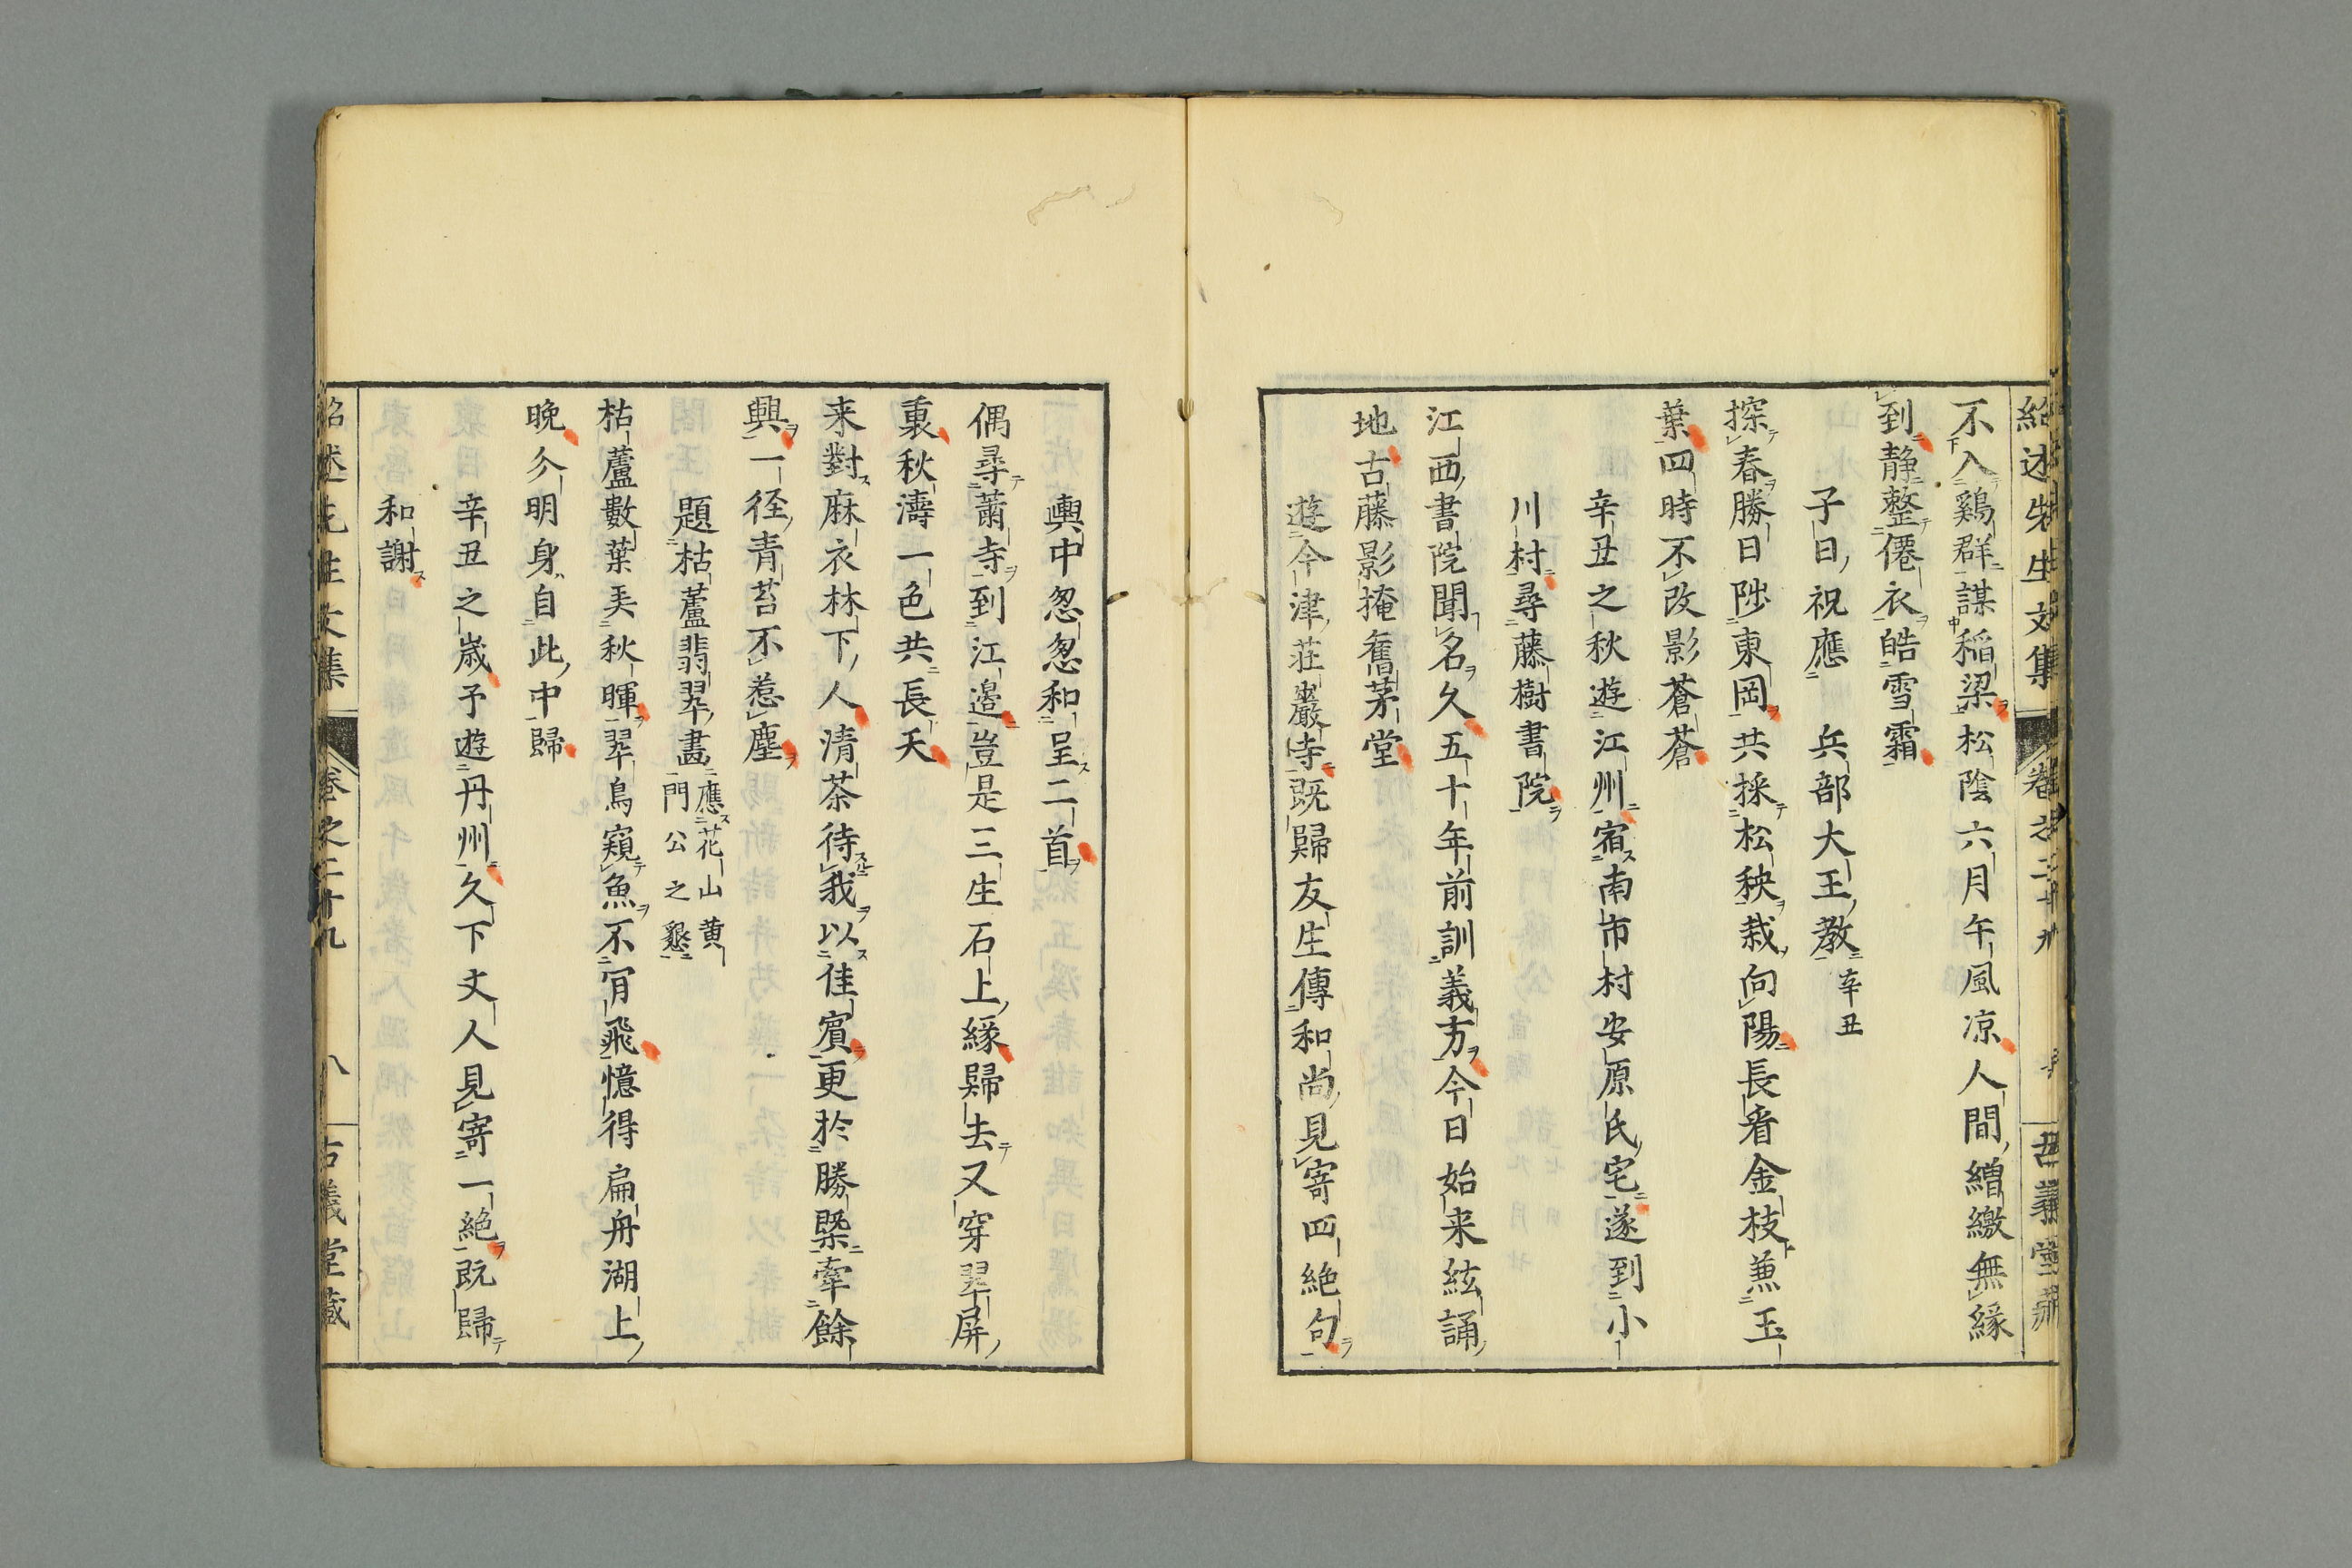 紹述先生文集 卷之二十九 古義堂藏
不入鷄群謀稻梁松陰六月午風凉人間繒繳無緣
到静整僊衣皓雪霜
子日祝應 兵部大王教辛丑
探春勝日陟東岡共採松秧栽向陽長看金枝兼玉
葉四時不改影蒼蒼
辛丑之秋遊江州宿南市村安原氏宅遂到小
川村尋藤樹書院
江西書院聞名久五十年前訓義方今日始来絃誦
地古藤影掩舊茅堂
遊今津莊嚴寺既歸友生傳和尚見寄四絶句
輿中怱怱和呈二首
偶尋蕭寺到江邉豈是三生石上緣歸去又穿翠屏
裏秋濤一色共長天
来對麻衣林下人清茶待我以佳賓更於勝槩牽餘
興一徑青苔不惹塵
題枯蘆翡翠畵應花山黄
門公之懇
枯蘆數葉弄秋暉翠鳥窺魚不肯飛憶得扁舟湖上
晚分明身自此中歸
辛丑之歳予遊丹州久下丈人見寄一絶既歸
和謝
紹述先生文集 卷之二十九 八 古義堂藏